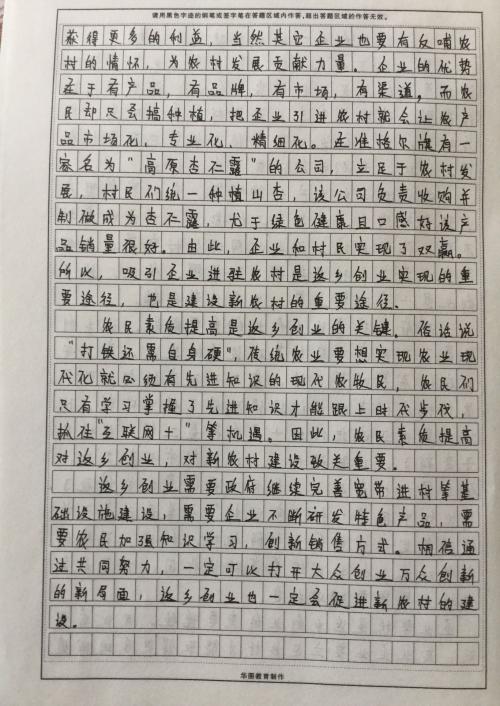 请用黑色字迹的钢笔或签字笔在答题区域内作答,超出答题区域的作答无效。
获得更多的利益，当然其它企业也要有反哺农
村的情怀，为农村发展贡献力量。企业的优势
在于有产品，有品牌，有市场，有渠道。而农
民却只会搞种植，把企业引进农村就会让农产
品市场化，专业化、精细化。在准格尔旗有一
家名为“高原杏仁露”的公司，立足于农村发
展，村民们统一种植山杏，该公司负责收购并
制做成为杏仁露，尤于绿色健康且口感好该产
品销量很好。由此，企业和村民实现了双赢。
所以，吸引企业进驻农村是返乡创业实现的重
要途径，也是建设新农村的重要途径.
农民素质提高是返乡创业的关键。俗话说
“打铁还需自身硬”，传统农业要想实现农业现
代化就必须有先进知识的现代农牧民，农民们
只有学习掌握了先进知识才能跟上时代步伐，
抓住“互联网+”等机遇。因此，农民素质提高
对返乡创业，对新农村建设致关重要。
返乡创业需要政府继续完善宽带进村等基
础设施建设，需要企业不断研发特色产品，需
要农民加强知识学习，创新销售方式。相信通
过共同努力，一定可以打开大众创业万众创新
的新局面，返乡创业也一定会促进新农村的建
设。
华图教育制作